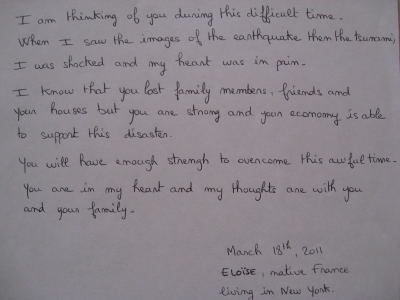 I am thinking of you during this difficult time.
When I saw the images of the earthquake then the tsunami,
I was shocked and my heart was in pain.
I know that you lost family members, friends and
your houses but you are strong and your economy is able
to support this disaster.
You will have enough strengh to overcome this awful time.
You are in my heart and my thoughts are with you
and your family.
March 18th, 2011
ELOÏSE, native France
living in New York.